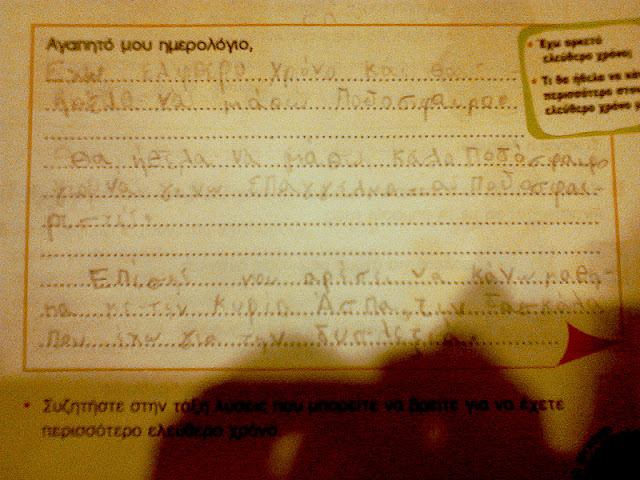 Αγαπητό μου ημερολόγιο,
Εχω ελφθερο χρόνο και θα
ήθελα να μάθω Ποδοσφαιρο
Θα ήθελα να μάθω καλο Ποδόσφαιρο
για να γίνω Επαγγελμα Ποδοσφαι-
ριστής
Επίσης μου αρέσει να κάνω μαθη-
μα με την Κυρία Ασπα, την δασκάλα
που έχω για την δυσλεξια.
• Έχω αρκετό
ελεύθερο χρόνο;
• Τι θα ήθελα να κά
περισσότερο στον
ελεύθερο χρόνο μ
• Συζητήστε στην τάξη λύσεις που μπορείτε να βρείτε για να έχετε
περισσότερο ελεύθερο χρόνο.